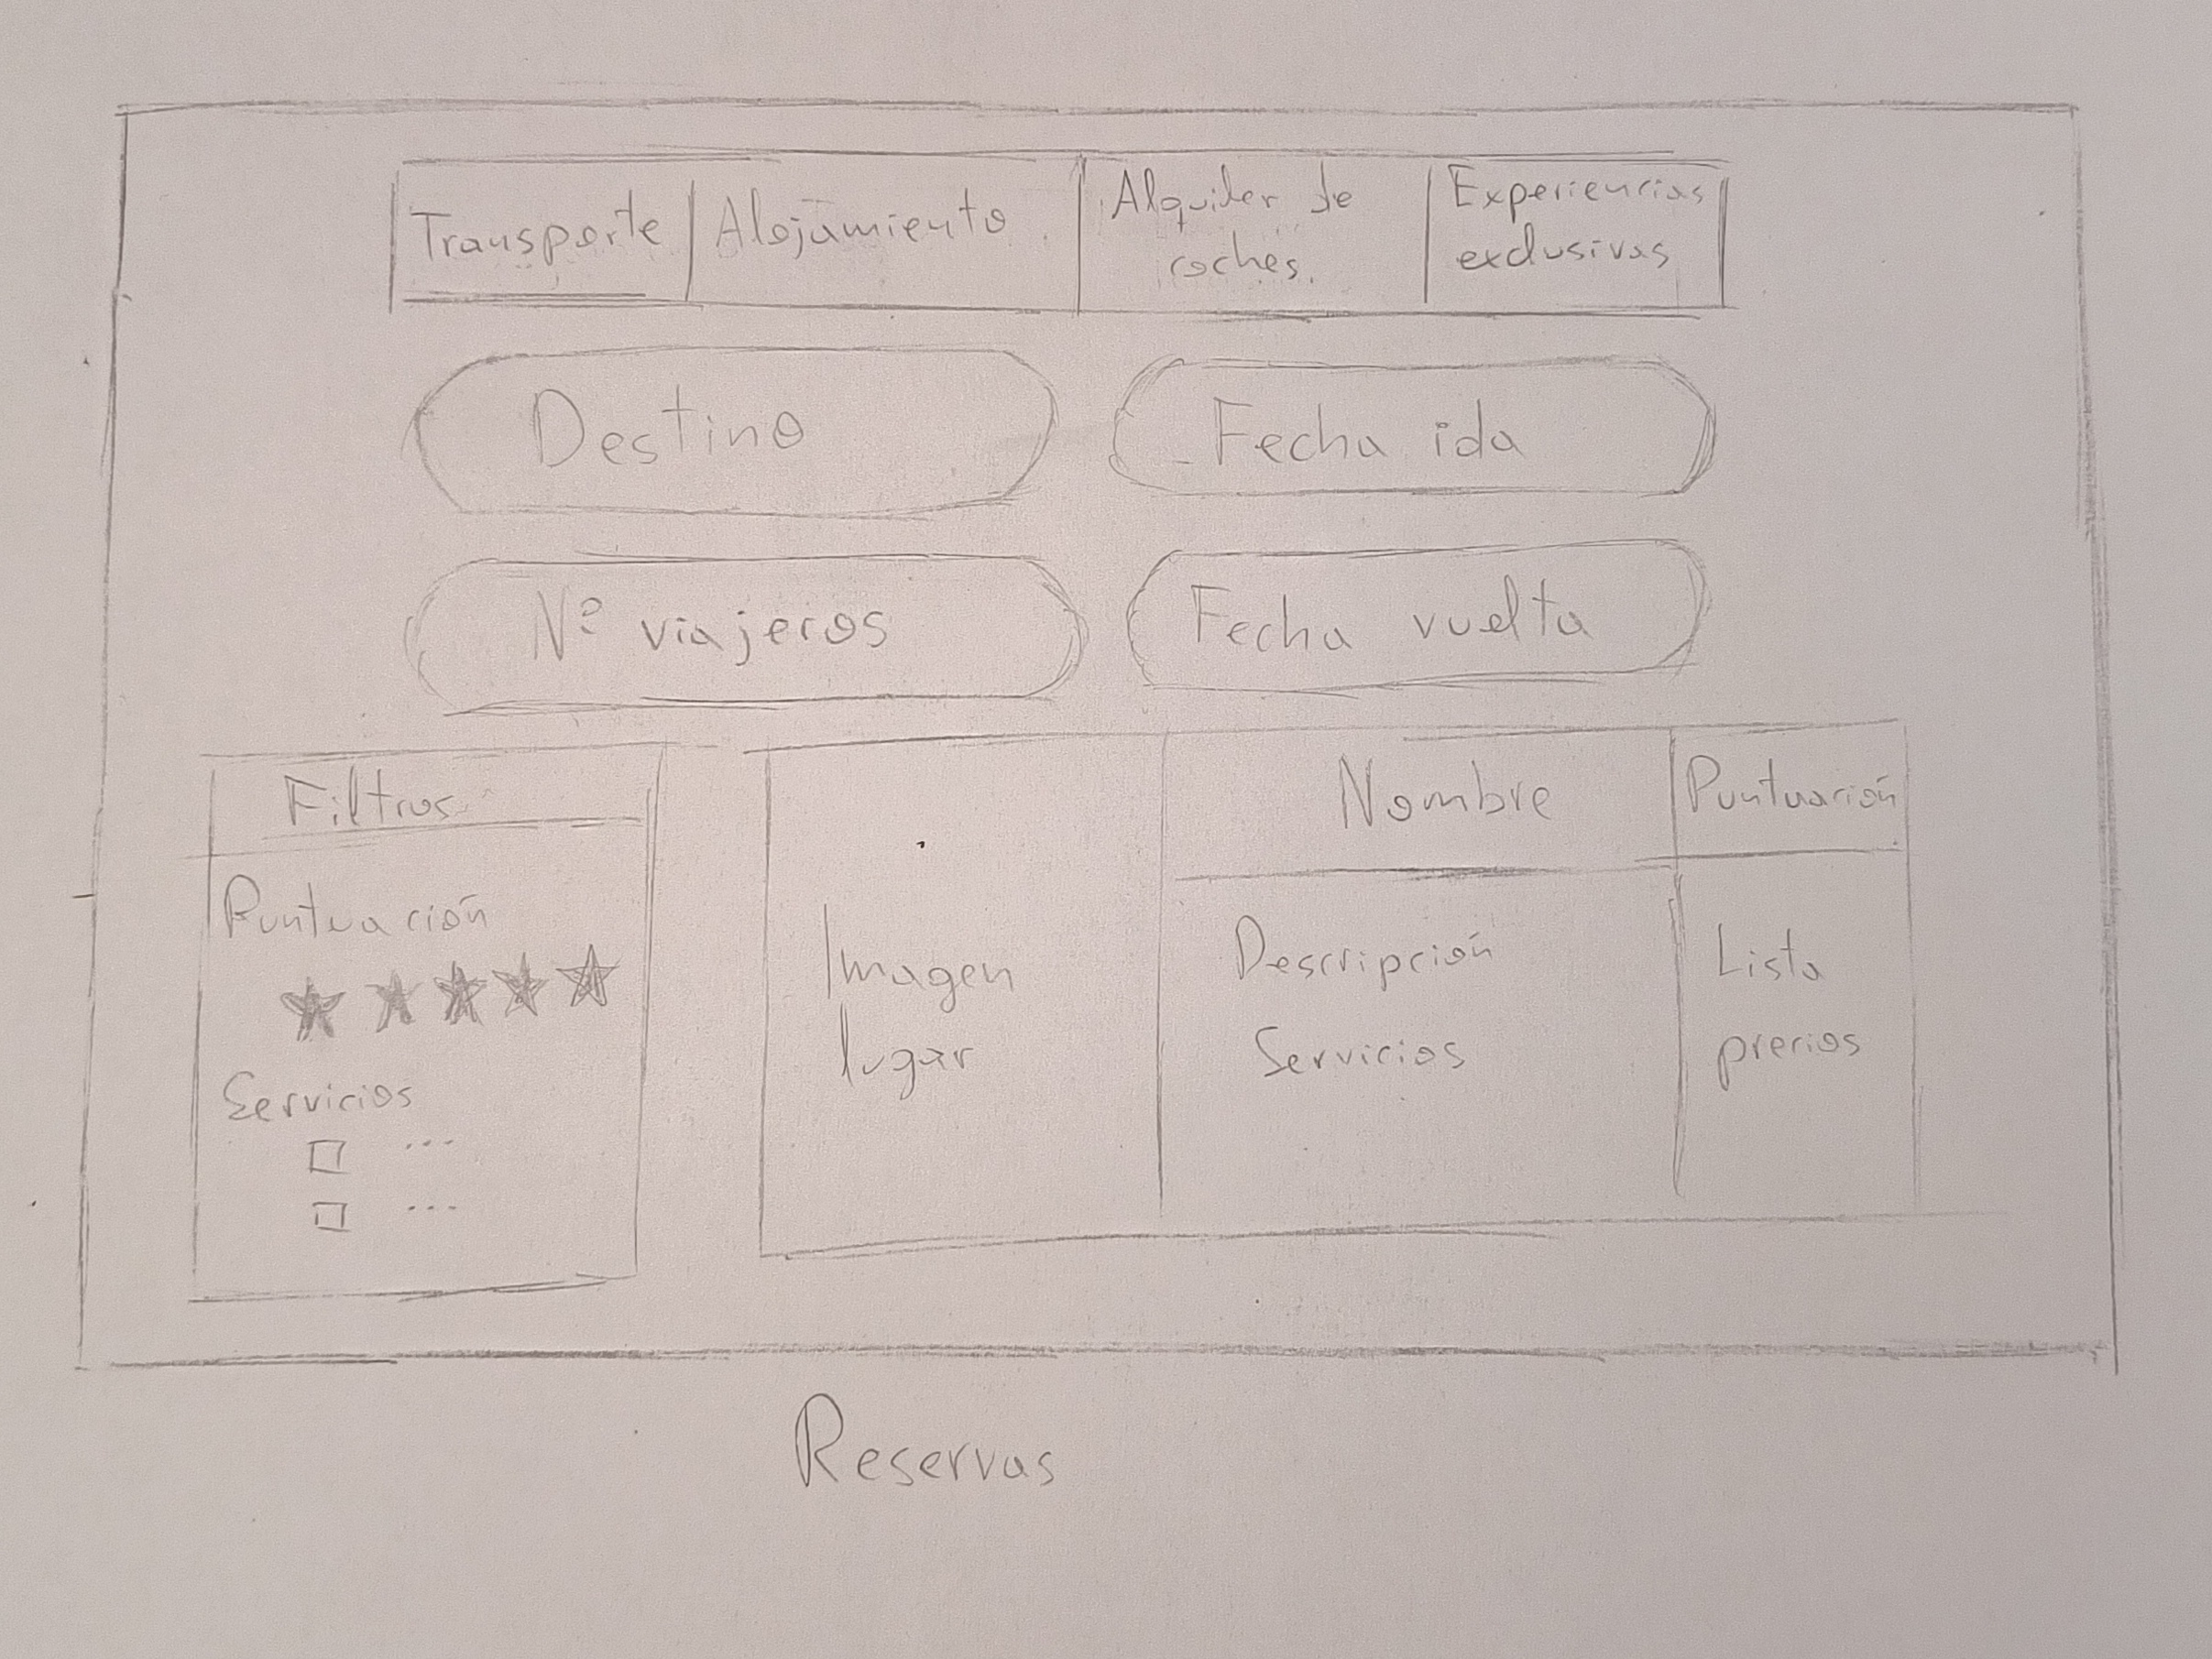 Transporte
Alojamiento
Alquiler de
coches.
Experiencias
exclusivas
Destino
Fecha ida
Nº viajeros
Fecha vuelta
Filtros
Puntuación
Servicios
...
...
Imagen
lugar
Nombre
Descripción
Servicios
Puntuación
Lista
precios
Reservas